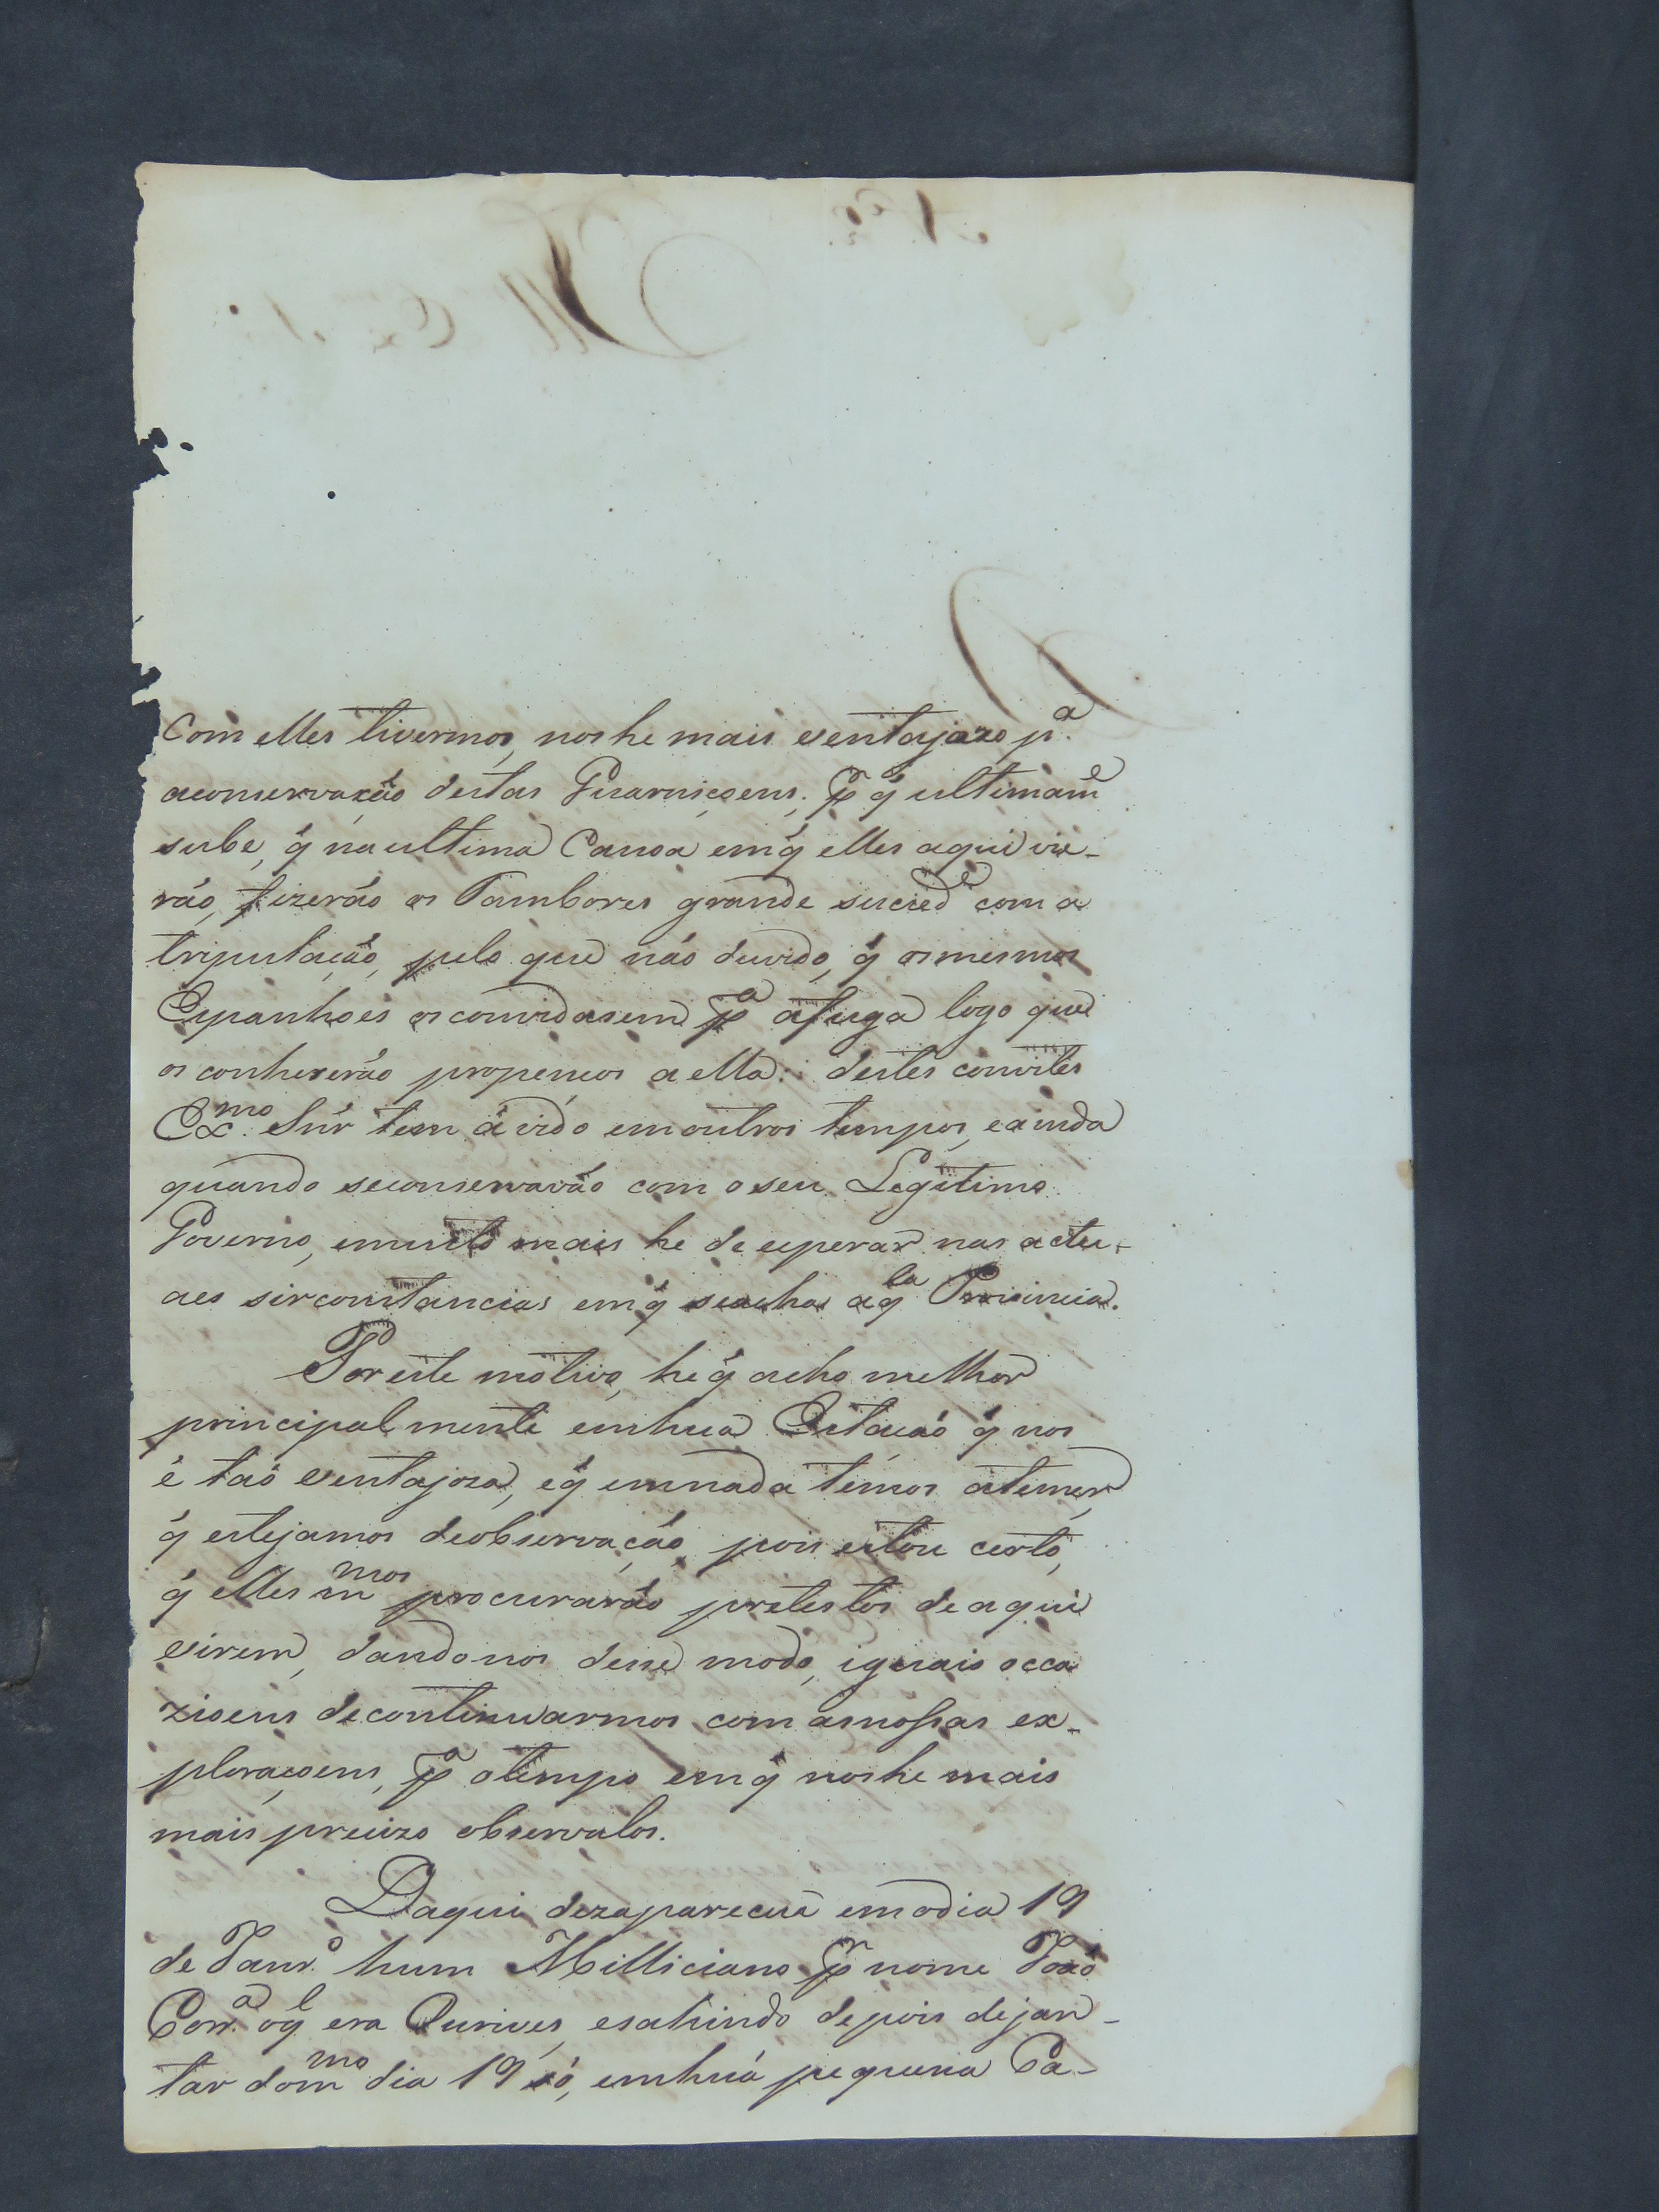 Com elles tivermos, nos he mais ventajozo p.ª
aconservaxão destas Guarniçoens, p q̃ ultimam.e
sube, q̃ na ultima Canoa emq̃ elles aqui vie-
rão, fizerão os Tambores grande sucied.e com a
tripulação, pelo que não duvido, q̃ os mesmos
Espanhoes os convidasem p.ª afuga logo que
os conhexerão propensos a ella: destes convites
Ex.mo Snr̃ tem ávido em outros tempos, e ainda
quando seconservavão com o seu Legitimo
Governo, emuito mais he de esperar nas actu-
aes sirconstancias emq̃ seacha aq̃la Provincia.
Por este motivo, he q̃ acho melhor
principalmente emhua Estação q̃ nos
é tão ventajoza, eq̃ emnada temos atemer,
q̃ estejamos deobservação, pois estou certo,
q̃ elles m.mos procurarão pretestos de aqui
virem, dandonos desse modo, iguais occa
zioens decontinuarmos com asnossas ex-
ploraçoens, p.ª otempo emq̃ nos he mais
mais precizo observalos.
Daqui dezapareceu emodia 19
de Janr.o hum Milliciano p.r nome João
Corr.ª oq̃l era Ourives, esahindo depois dejan-
tar dom.mo dia 19 só, emhuá pequena Ca-